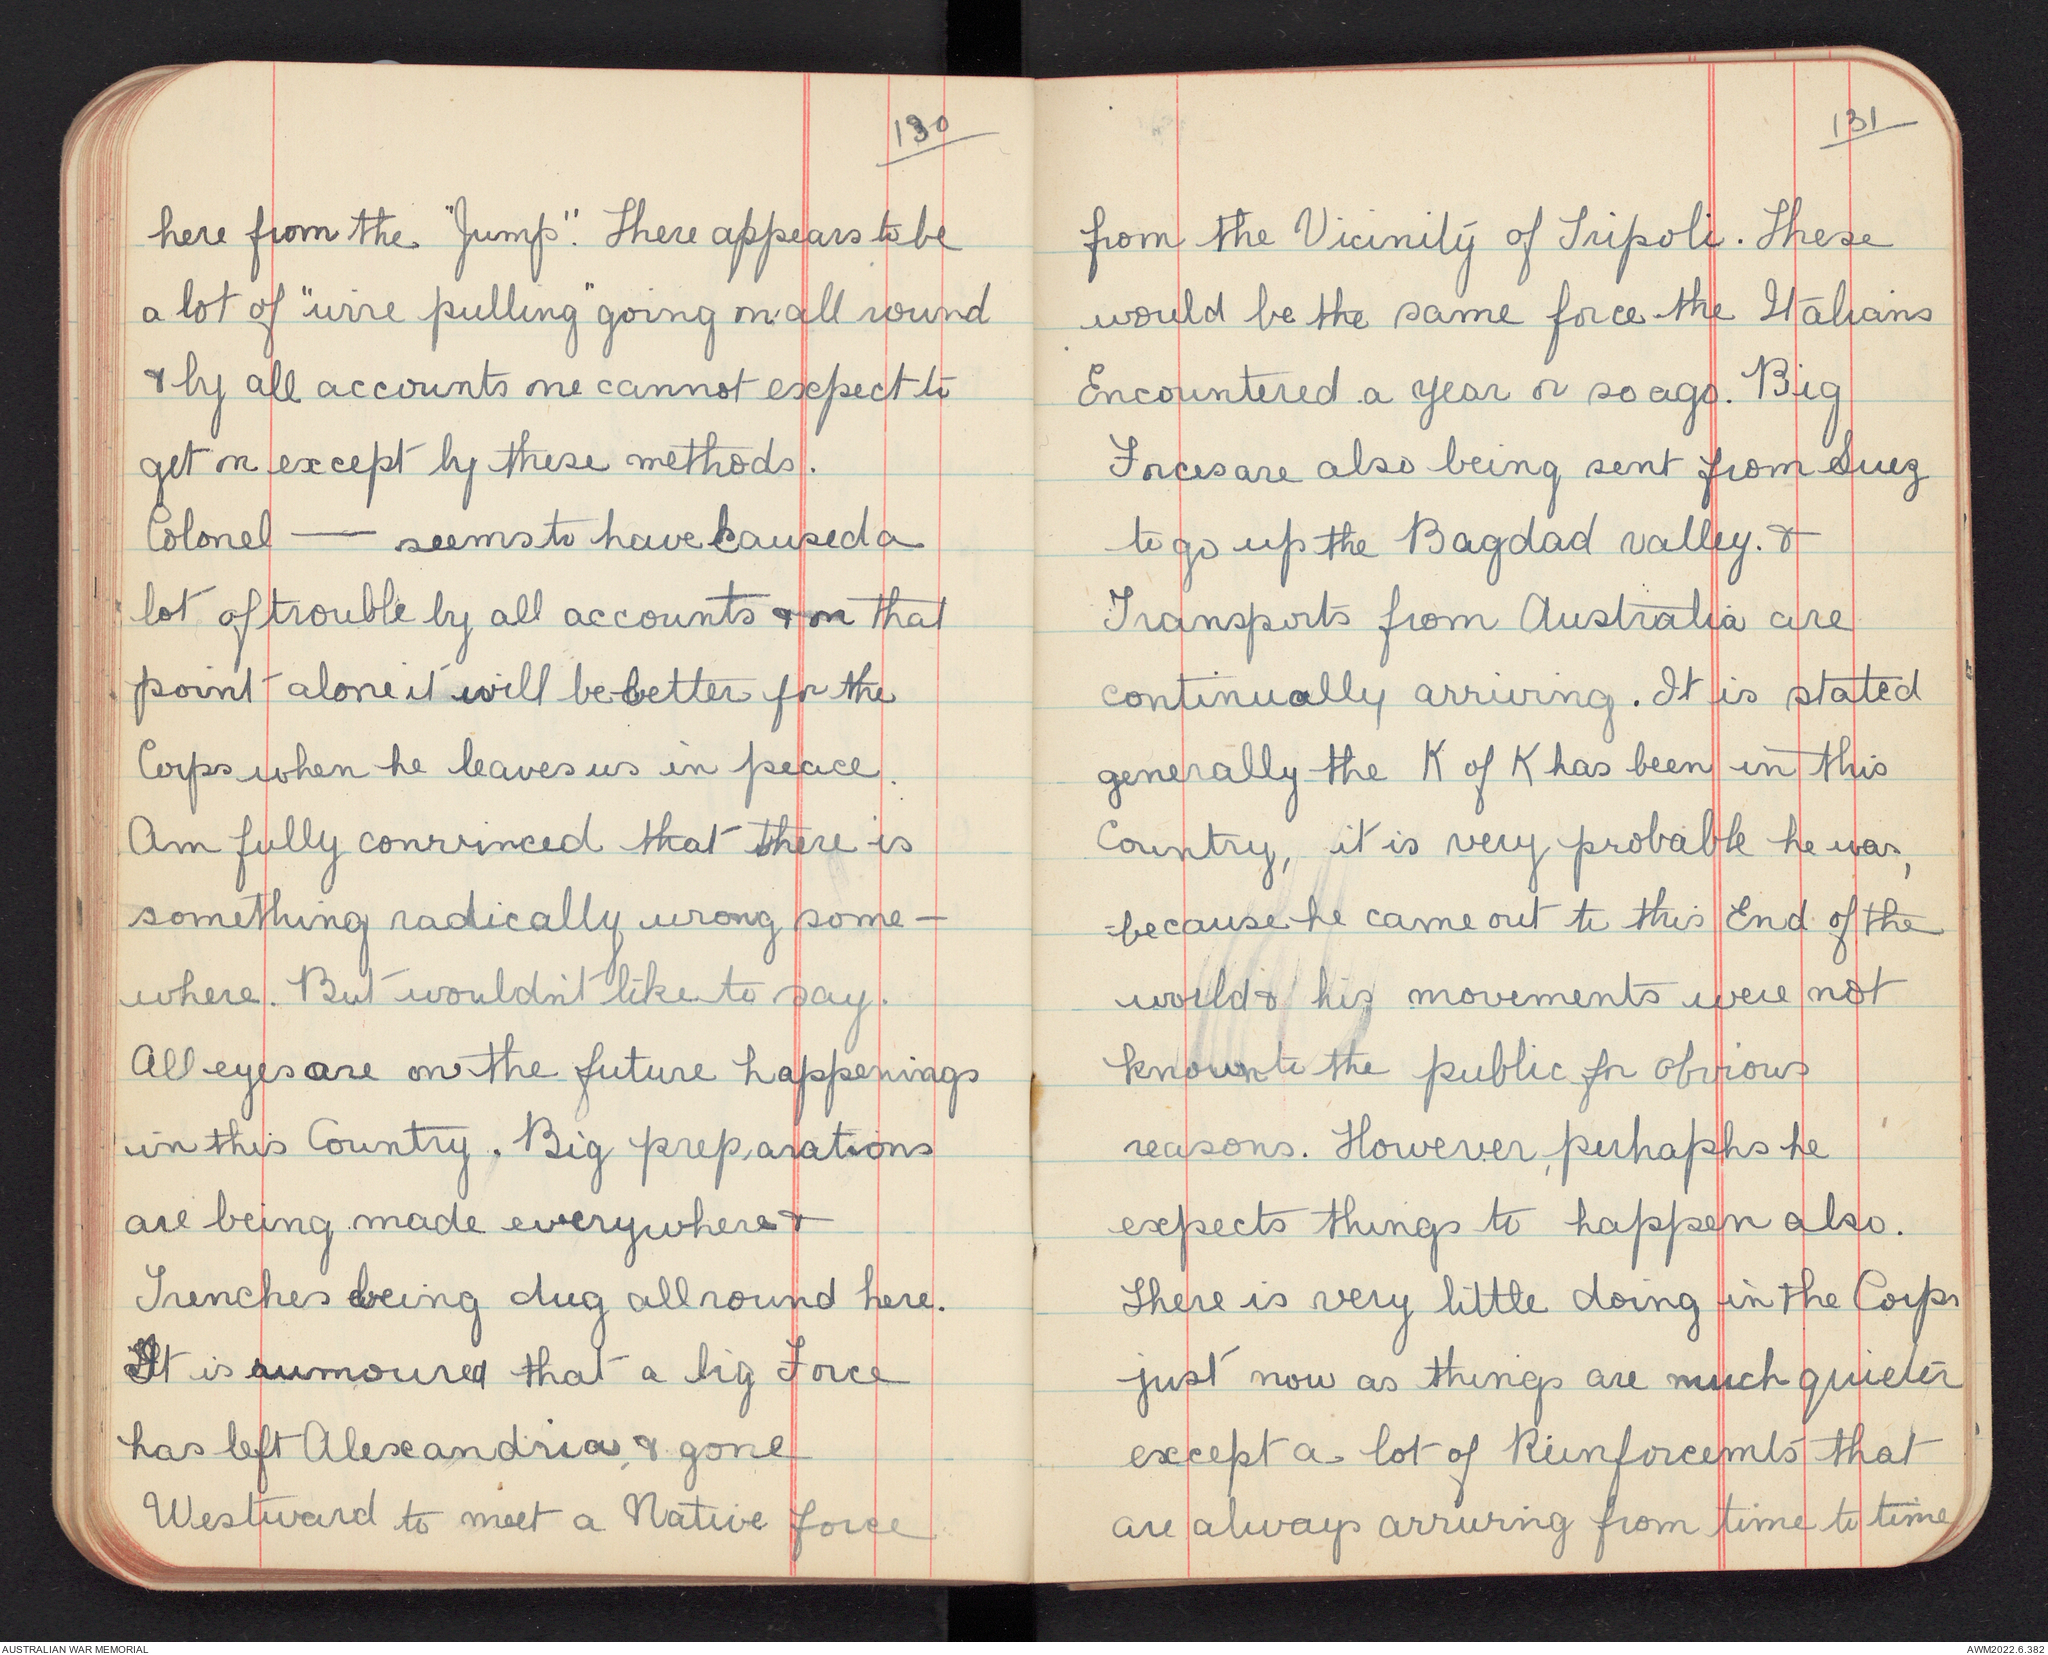 130
here from the "Jump". There appears to be
a lot of "wire pulling" going on all round
& by all accounts one cannot expect to
get on except by these methods.
Colonel — seems to have caused a
lot of trouble by all accounts & on that
point alone it will be better for the
Corps when he leaves us in peace.
Am fully convinced that there is
something radically wrong some-
where. But wouldn't like to say.
All eyes are on the future happenings
in this Country. Big preparations
are being made everywhere &
Trenches being dug all round here.
It is rumoured that a big Force
has left Alexandria, & gone
Westward to meet a Native force
131
from the Vicinity of Tripoli. These
would be the same force the Italians
Encountered a year or so ago. Big
Forces are also being sent from Suez
to go up the Bagdad valley. &
Transports from Australia are
continually arriving. It is stated
generally the K of K has been in this
Country, it is very probable he was,
because he came out to this End of the
world & his movements were not
known to the public for obvious
reasons. However, perhaphs he
expects things to happen also.
There is very little doing in the Corps
just now as things are much quieter
except a lot of Reinforcemts that
are always arriving from time to time
AUSTRALIAN WAR MEMORIAL
AWM2022.6.382